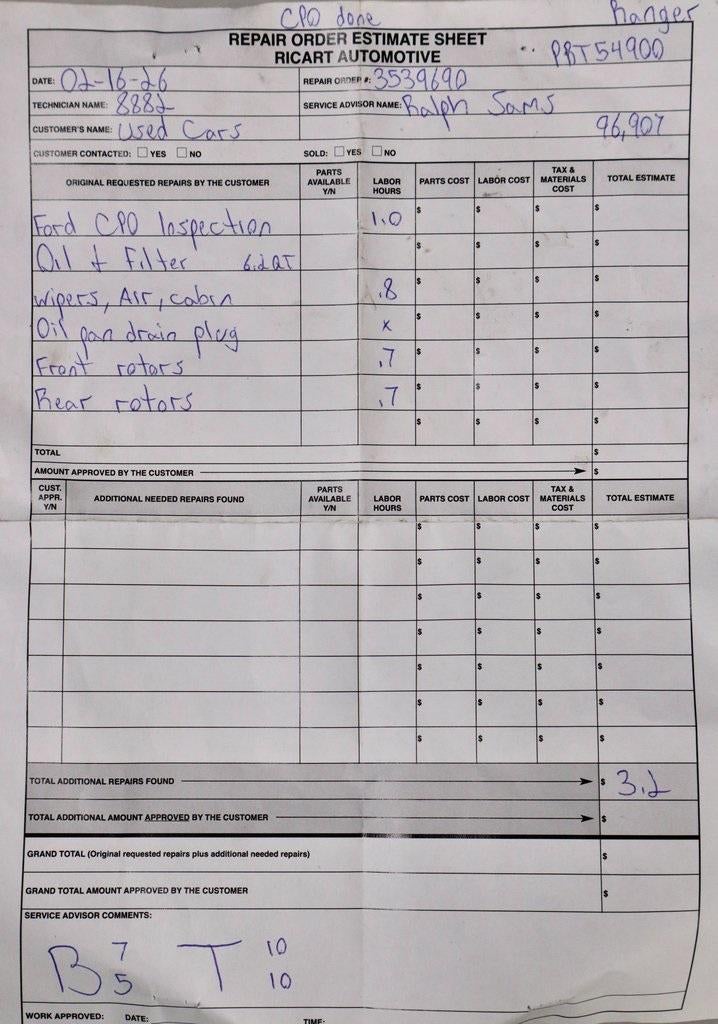 CPO done
Ranger
REPAIR ORDER ESTIMATE SHEET
RICART AUTOMOTIVE
PBT54900
DATE: 02-16-26 REPAIR ORDER #: 3539690
TECHNICIAN NAME: 8882 SERVICE ADVISOR NAME: Ralph Sams
CUSTOMER'S NAME: Used Cars 96,907
CUSTOMER CONTACTED: YES NO SOLD: YES NO
ORIGINAL REQUESTED REPAIRS BY THE CUSTOMER PARTS AVAILABLE Y/N LABOR HOURS PARTS COST LABOR COST TAX & MATERIALS COST TOTAL ESTIMATE
Ford CPO Inspection 1.0 $ $ $ $
Oil + Filter 6.2QT $ $ $ $
wipers, Air, cabin .8 $ $ $ $
Oil pan drain plug x $ $ $ $
Front rotors .7 $ $ $ $
Rear rotors .7 $ $ $ $
$ $ $ $
TOTAL $
AMOUNT APPROVED BY THE CUSTOMER $
CUST. APPR. Y/N ADDITIONAL NEEDED REPAIRS FOUND PARTS AVAILABLE Y/N LABOR HOURS PARTS COST LABOR COST TAX & MATERIALS COST TOTAL ESTIMATE
$ $ $ $
$ $ $ $
$ $ $ $
$ $ $ $
$ $ $ $
$ $ $ $
$ $ $ $
TOTAL ADDITIONAL REPAIRS FOUND $ 3.2
TOTAL ADDITIONAL AMOUNT APPROVED BY THE CUSTOMER $
GRAND TOTAL (Original requested repairs plus additional needed repairs) $
GRAND TOTAL AMOUNT APPROVED BY THE CUSTOMER $
SERVICE ADVISOR COMMENTS:
B 7 T 10
5 10
WORK APPROVED: DATE: TIME: